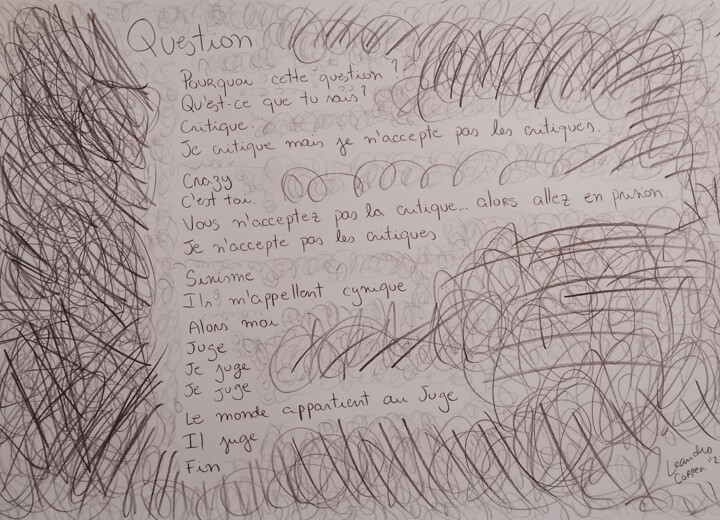 Question
Pourquoi cette question ?
Qu'est-ce que tu sais?
Critique.
Je critique mais je n'accepte pas les critiques.
Crazy
C'est toi.
Vous n'acceptez pas la critique... alors allez en prison.
Je n'accepte pas les critiques
Sinisme
Ils m'appellent cynique
Alors moi
Juge
Je juge
Je juge
Le monde appartient au Juge
Il juge
Fin
Leandro